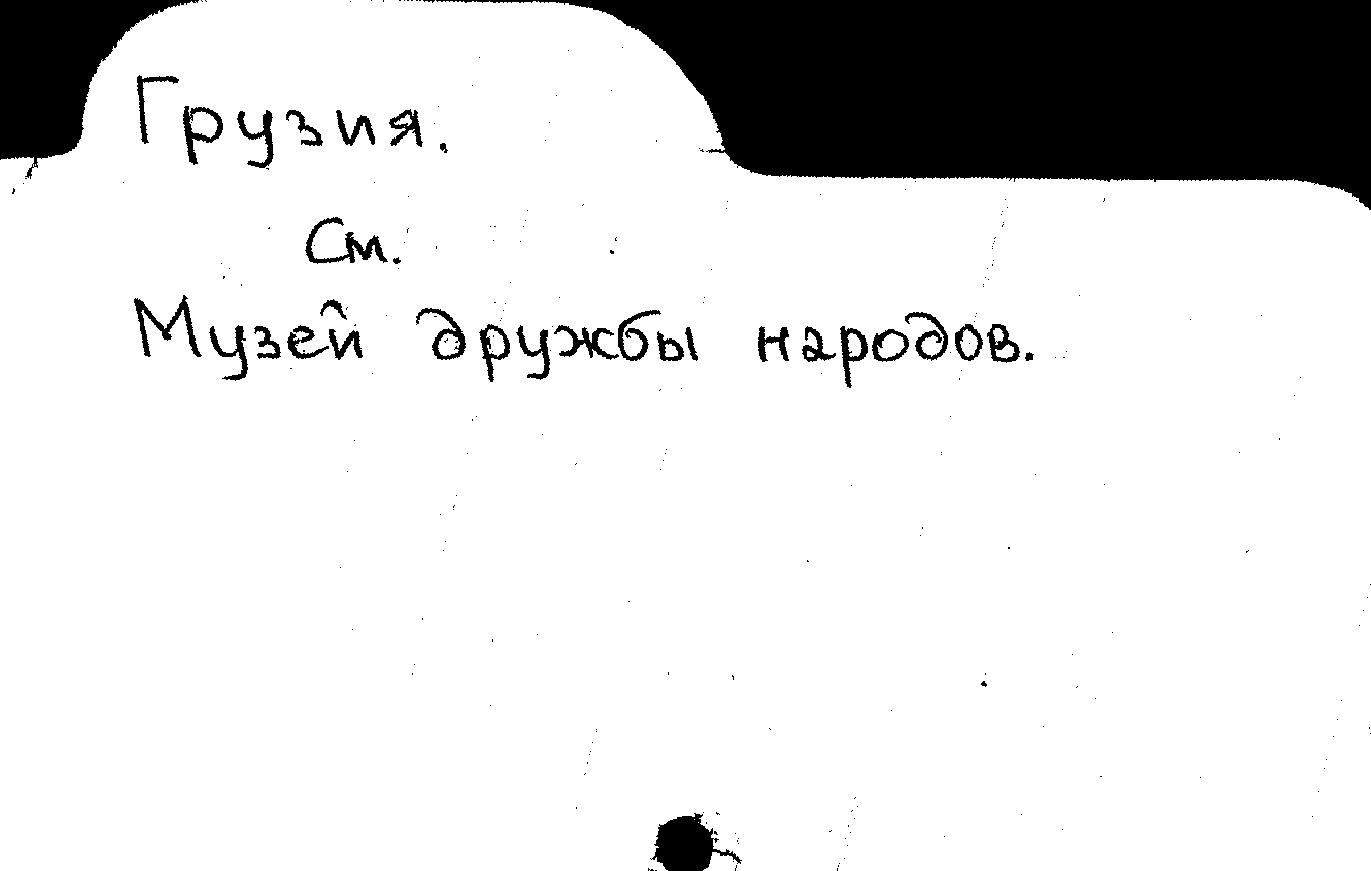 Грузия.
См.
Музей дружбы народов.